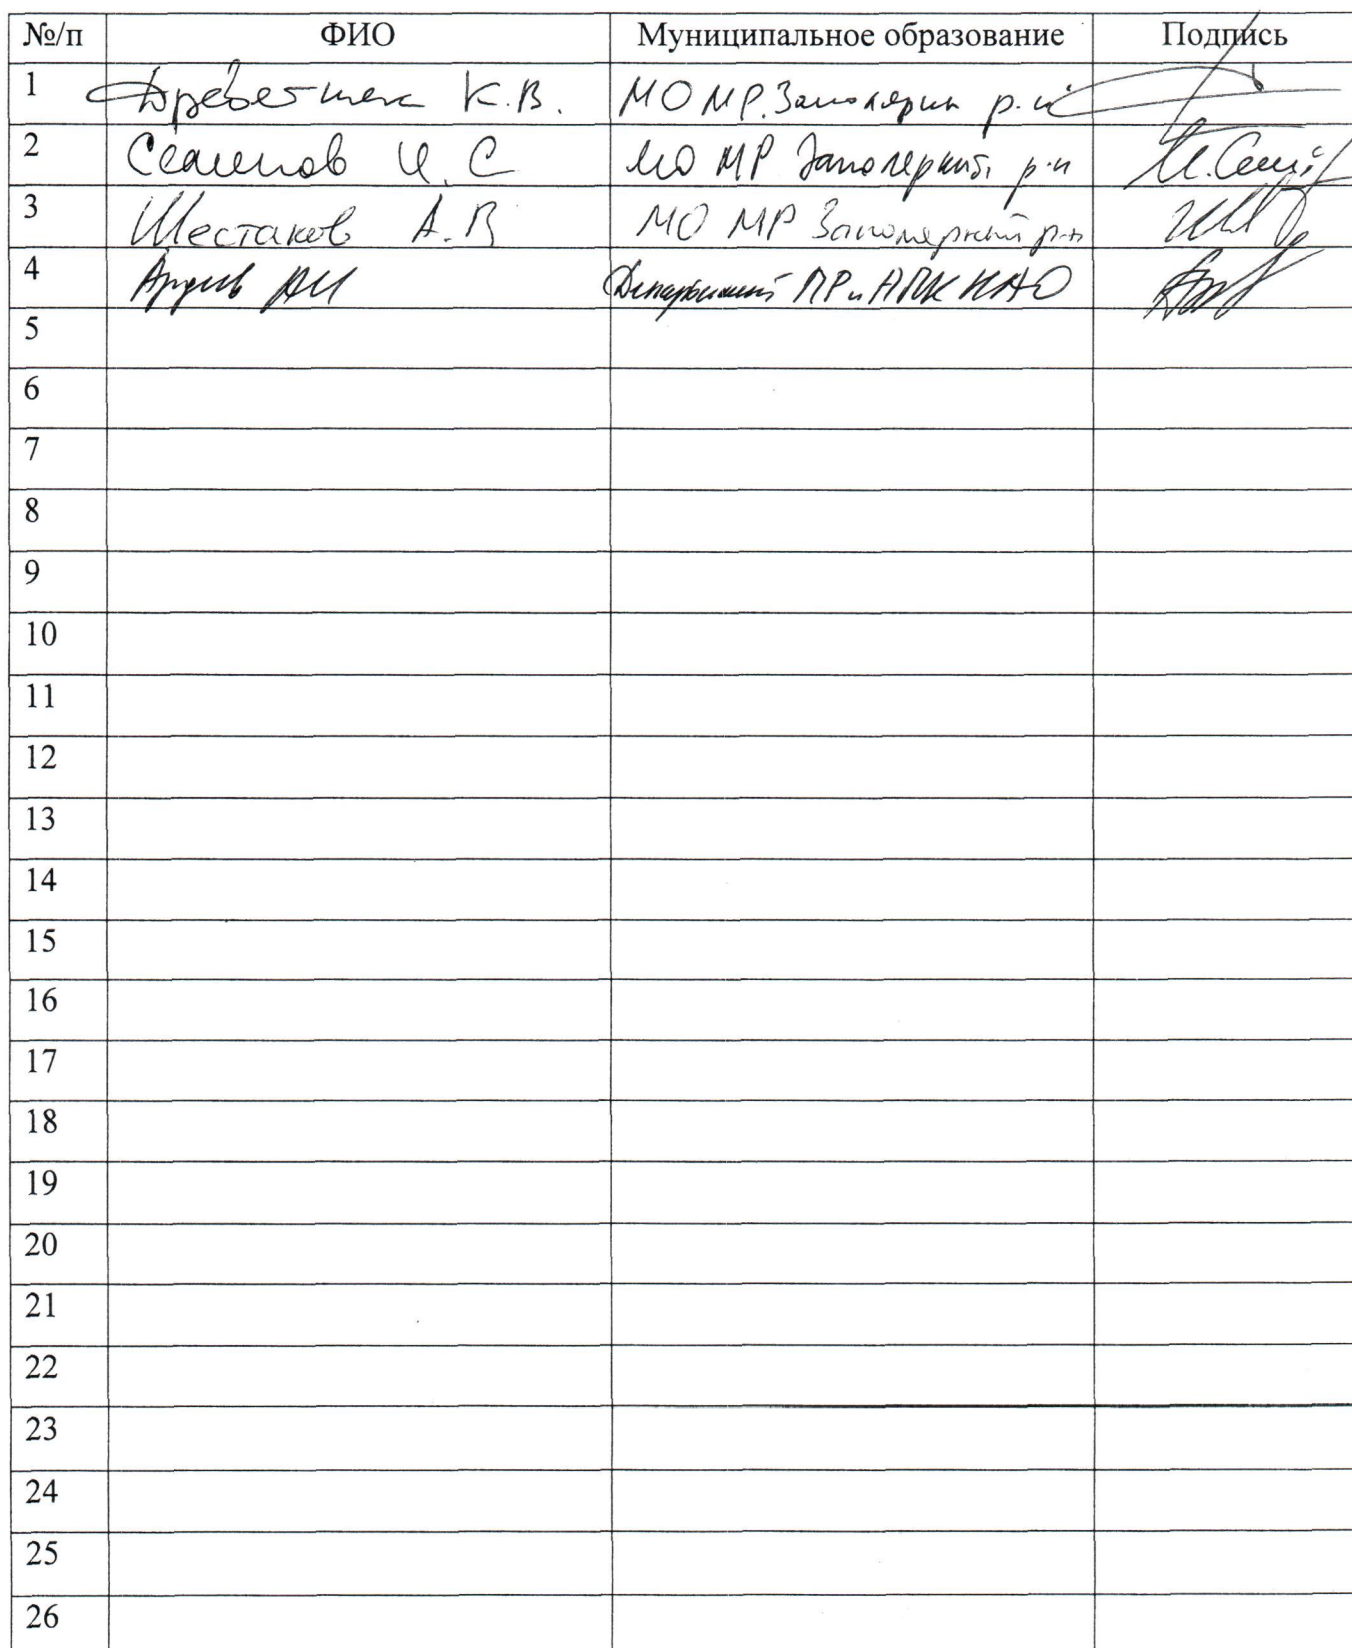 №/п ФИО Муниципальное образование Подпись
1 К.В. МО МР. Заполярн р-н
2 Семенов И. С МО МР Заполярный р-н
3 Шестаков А.В МО МР Заполярный р-н
4 АИ Департамент ПР и АПК НАО
5
6
7
8
9
10
11
12
13
14
15
16
17
18
19
20
21
22
23
24
25
26